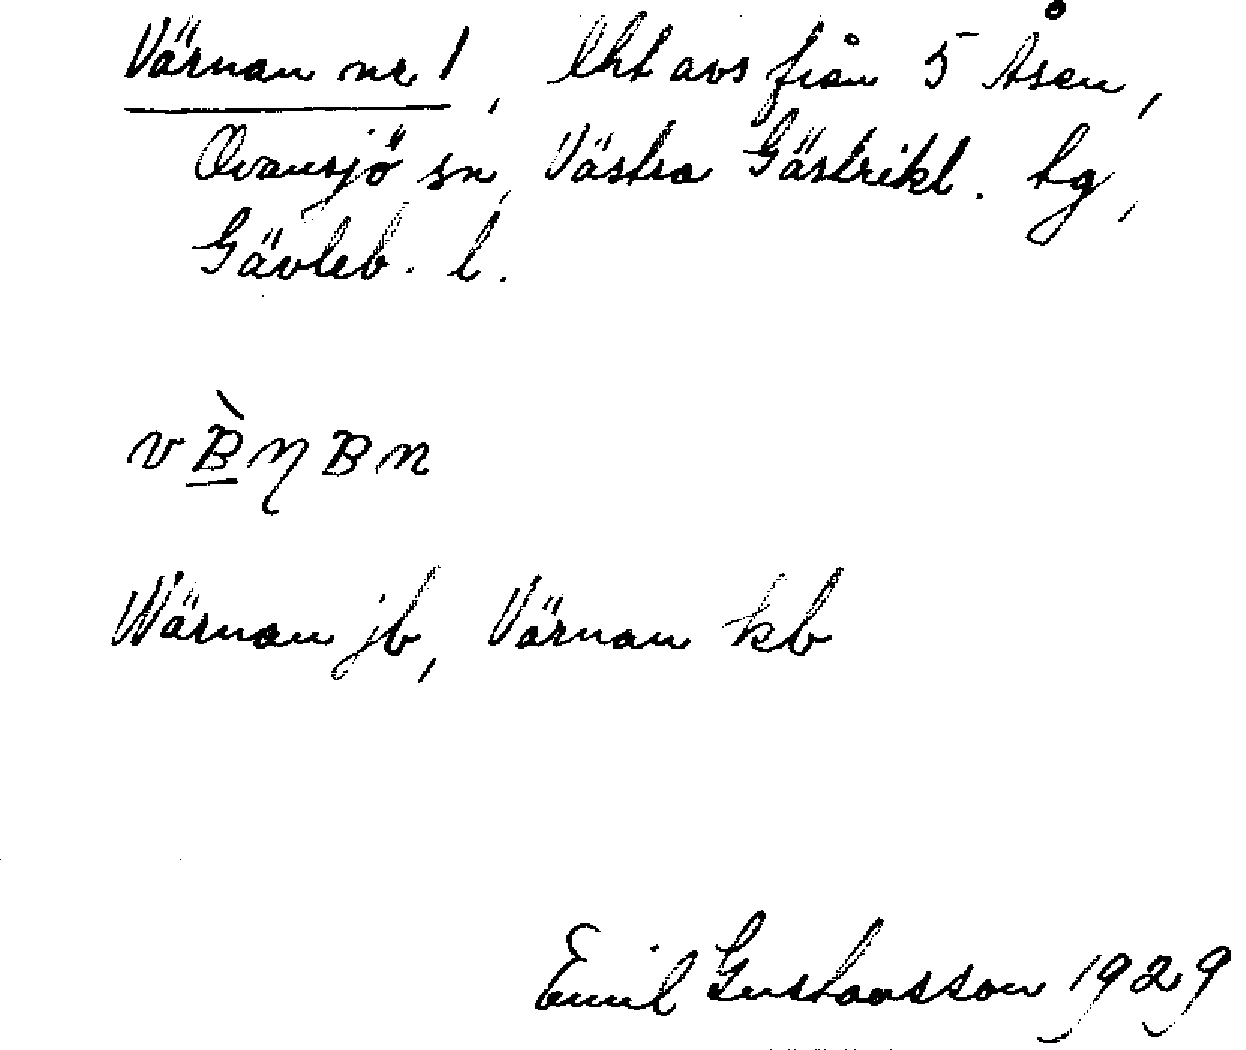 Värnan nr 1, lht avs från 5 Åsen,
Ovansjö sn, Västra Gästrikl. tg,
Gävleb. l.
Wärnan jb, Värnan kb
Emil Gustavsson 1929